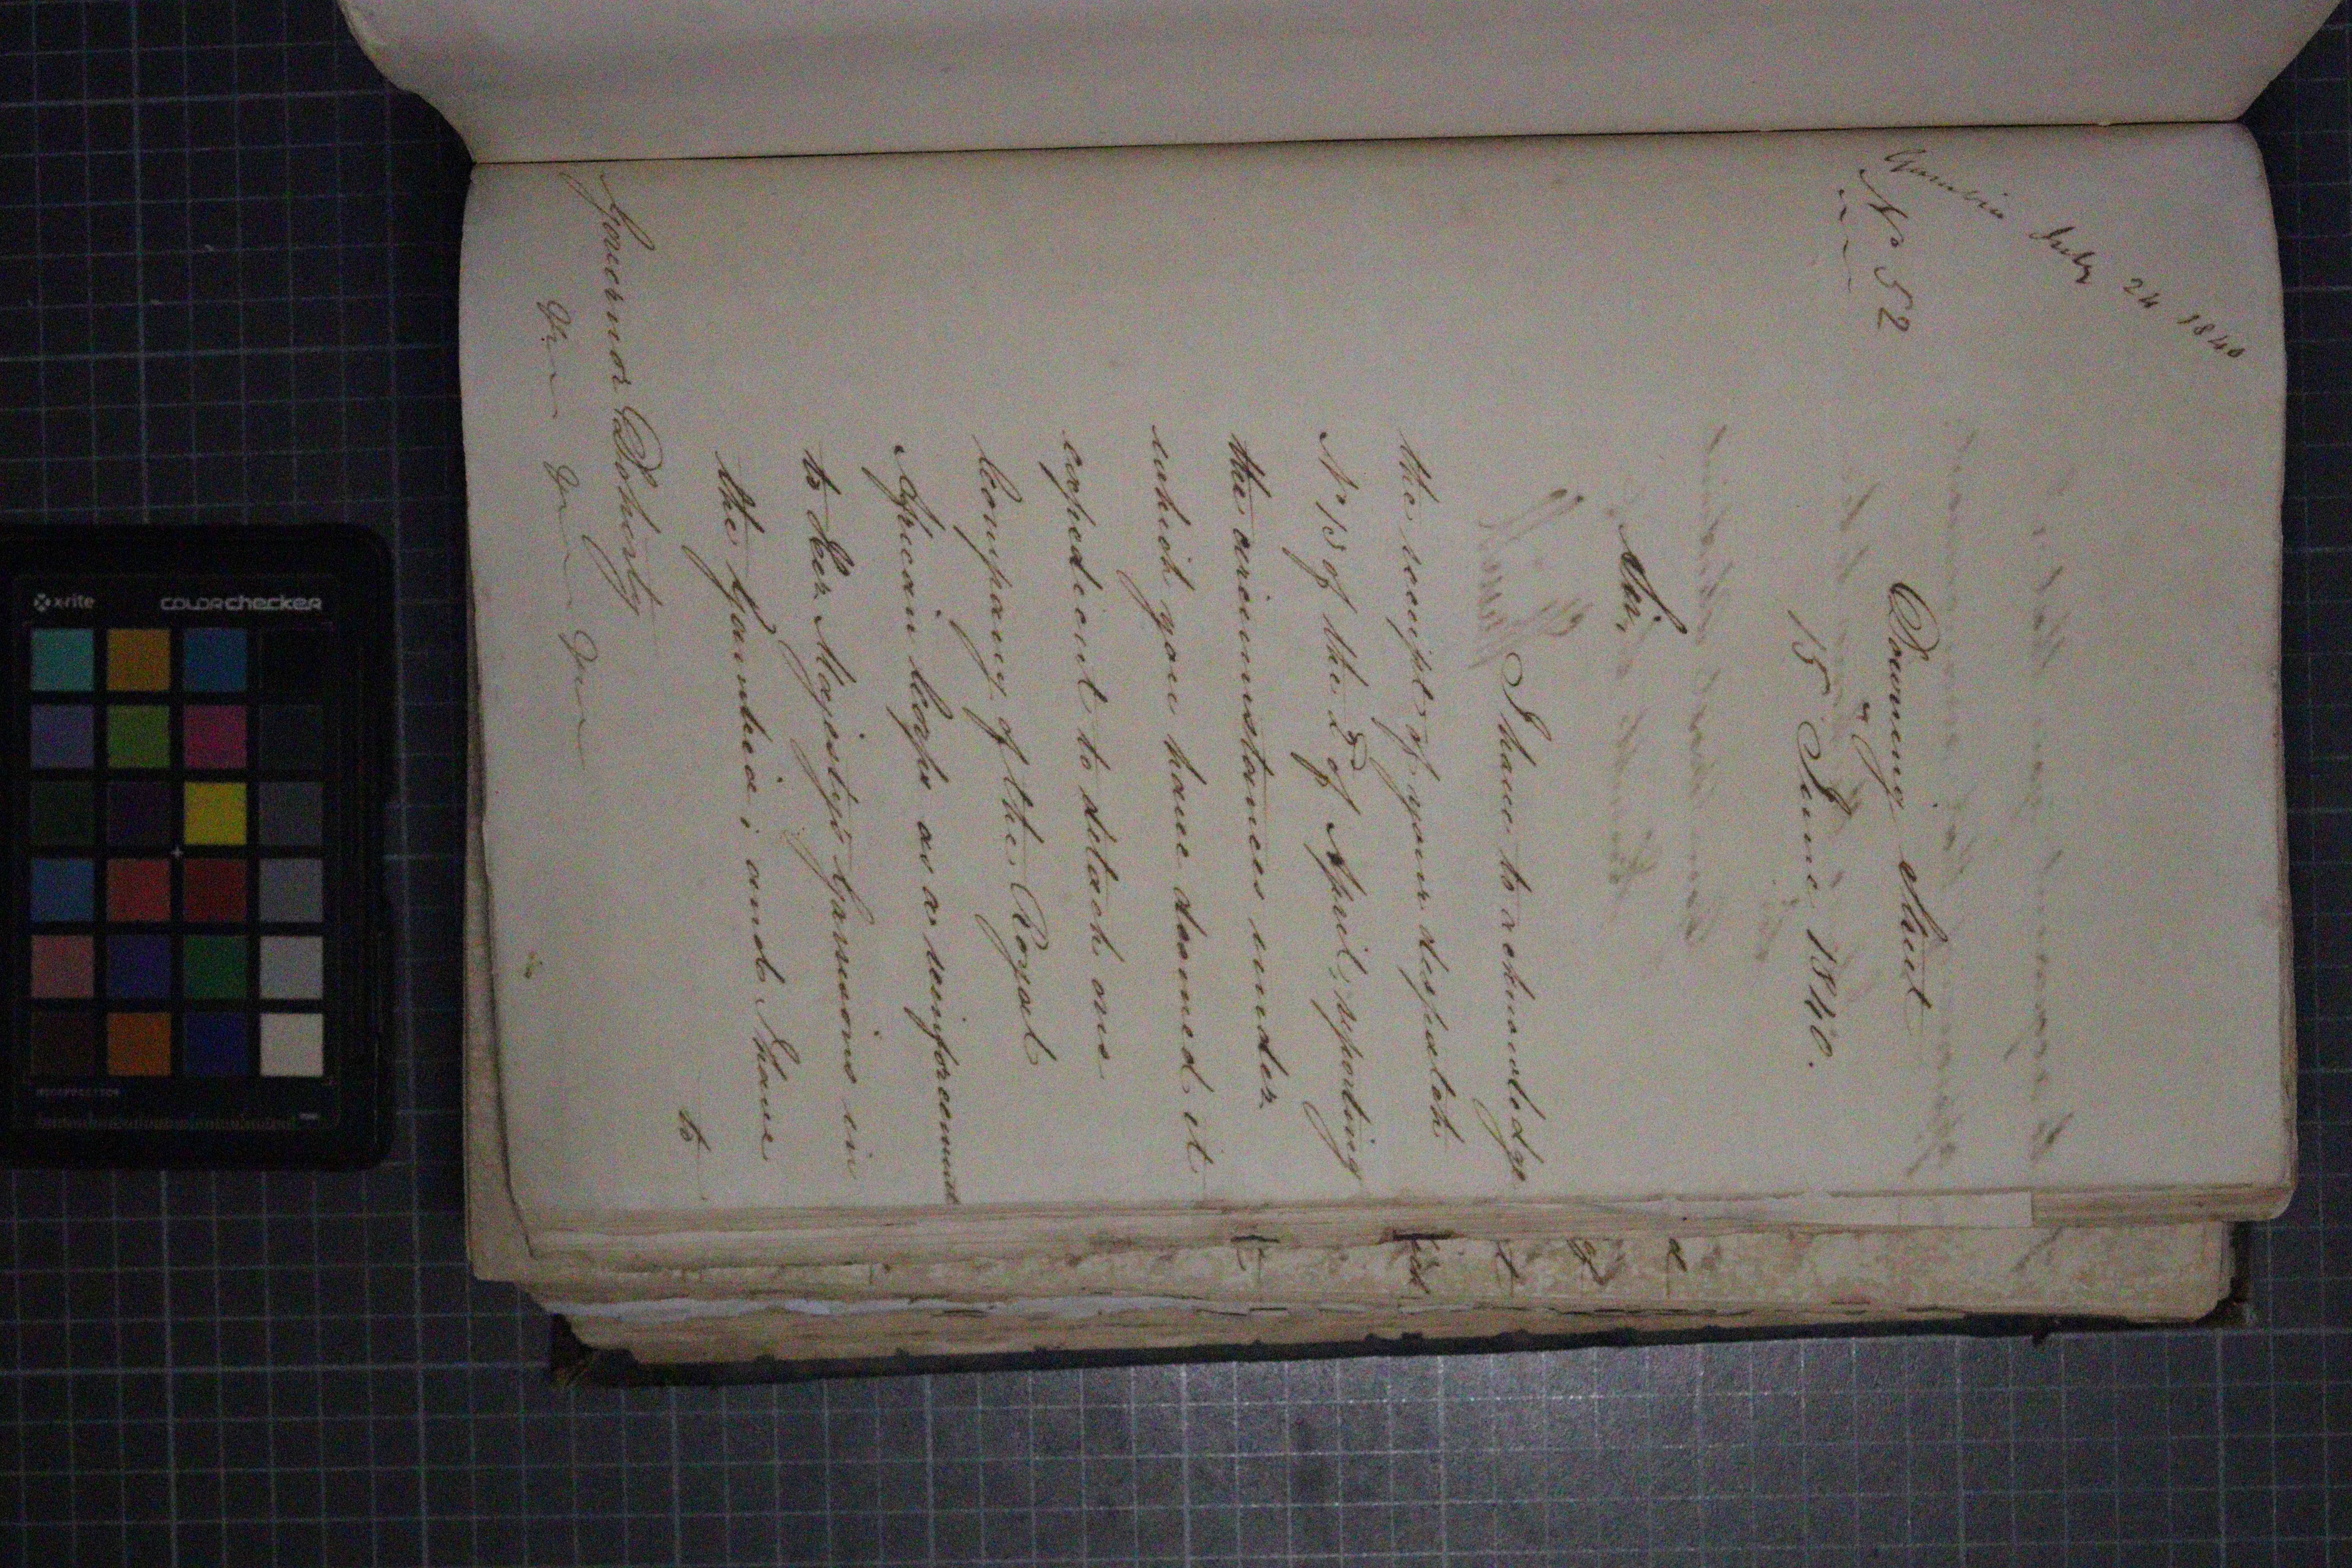 Gambia July 24 1840
No 52
Downing Street
15 June 1840.
Sir,
I have to acknowledge
the receipt of your despatch
No 13 of the 2d of April, reporting
the circumstances under
which you have deemed it
expedient to detach one
Company of the Royal
African Corps as a reinforcement
to Her Majesty's Garrisons in
the Gambia; and I have
to
Governor Doherty
x-rite
colorchecker